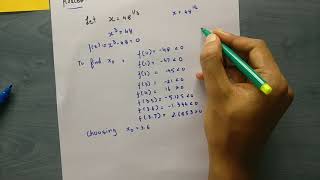 Let x = 48^(1/3)
x = 48^(1/3)
x³ = 48
f(x) = x³ - 48 = 0
To find x₀, f(0) = -48 < 0
f(1) = -47 < 0
f(2) = -40 < 0
f(3) = -21 < 0
f(4) = 16 > 0
f(3.5) = -5.125 < 0
f(3.6) = -1.344 < 0
f(3.7) = 2.653 > 0
choosing x₀ = 3.6